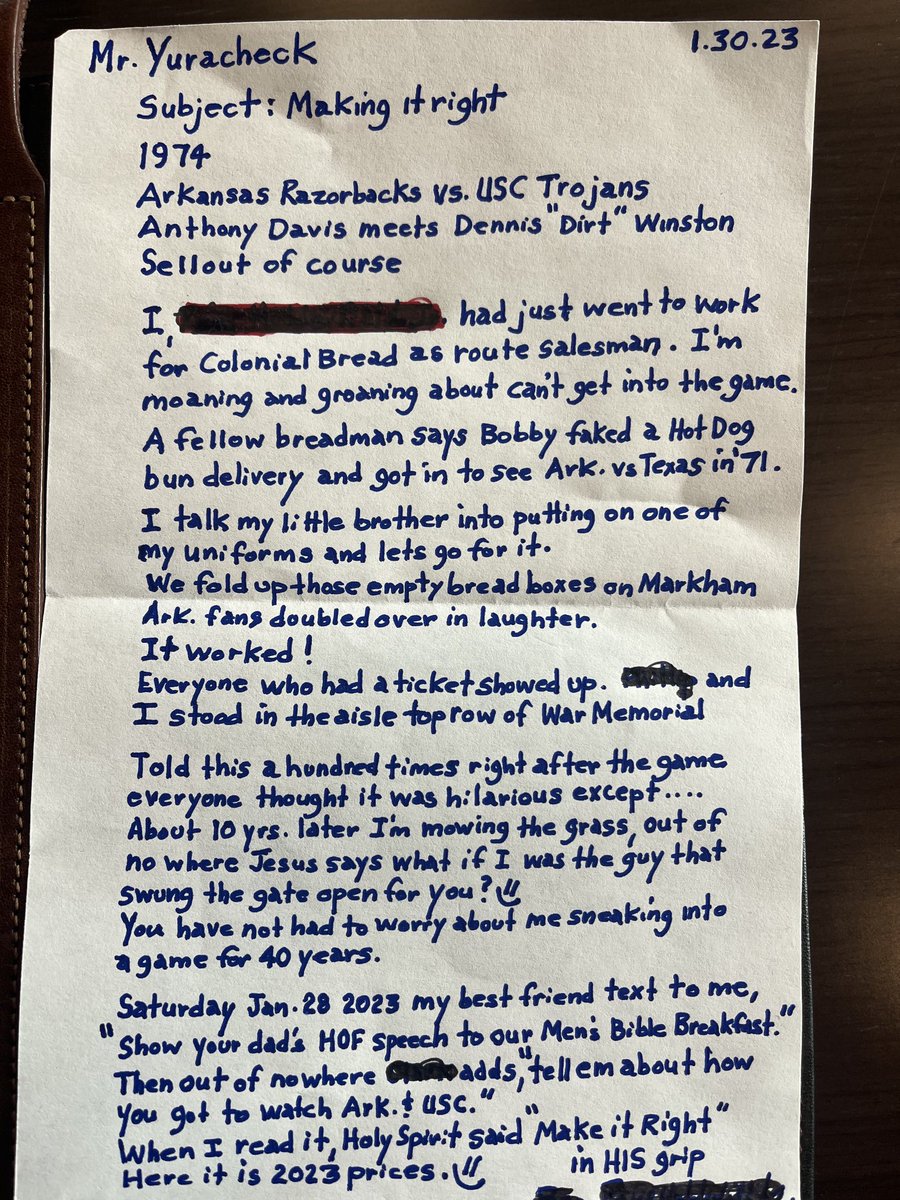 Mr. Yuracheck 1.30.23
Subject: Making it right
1974
Arkansas Razorbacks vs. USC Trojans
Anthony Davis meets Dennis "Dirt" Winston
Sellout of course
I, had just went to work
for Colonial Bread as route salesman. I'm
moaning and groaning about can't get into the game.
A fellow breadman says Bobby faked a Hot Dog
bun delivery and got in to see Ark. vs Texas in '71.
I talk my little brother into putting on one of
my uniforms and lets go for it.
We fold up those empty bread boxes on Markham
Ark. fans doubled over in laughter.
It worked!
Everyone who had a ticket showed up. and
I stood in the aisle top row of War Memorial
Told this a hundred times right after the game
everyone thought it was hilarious except....
About 10 yrs. later I'm mowing the grass, out of
no where Jesus says what if I was the guy that
swung the gate open for you?
You have not had to worry about me sneaking into
a game for 40 years.
Saturday Jan. 28 2023 my best friend text to me,
"Show your dad's HOF speech to our Men's Bible Breakfast."
Then out of nowhere adds, "tell em about how
you got to watch Ark. & USC."
When I read it, Holy Spirit said "Make it Right"
Here it is 2023 prices. in HIS grip